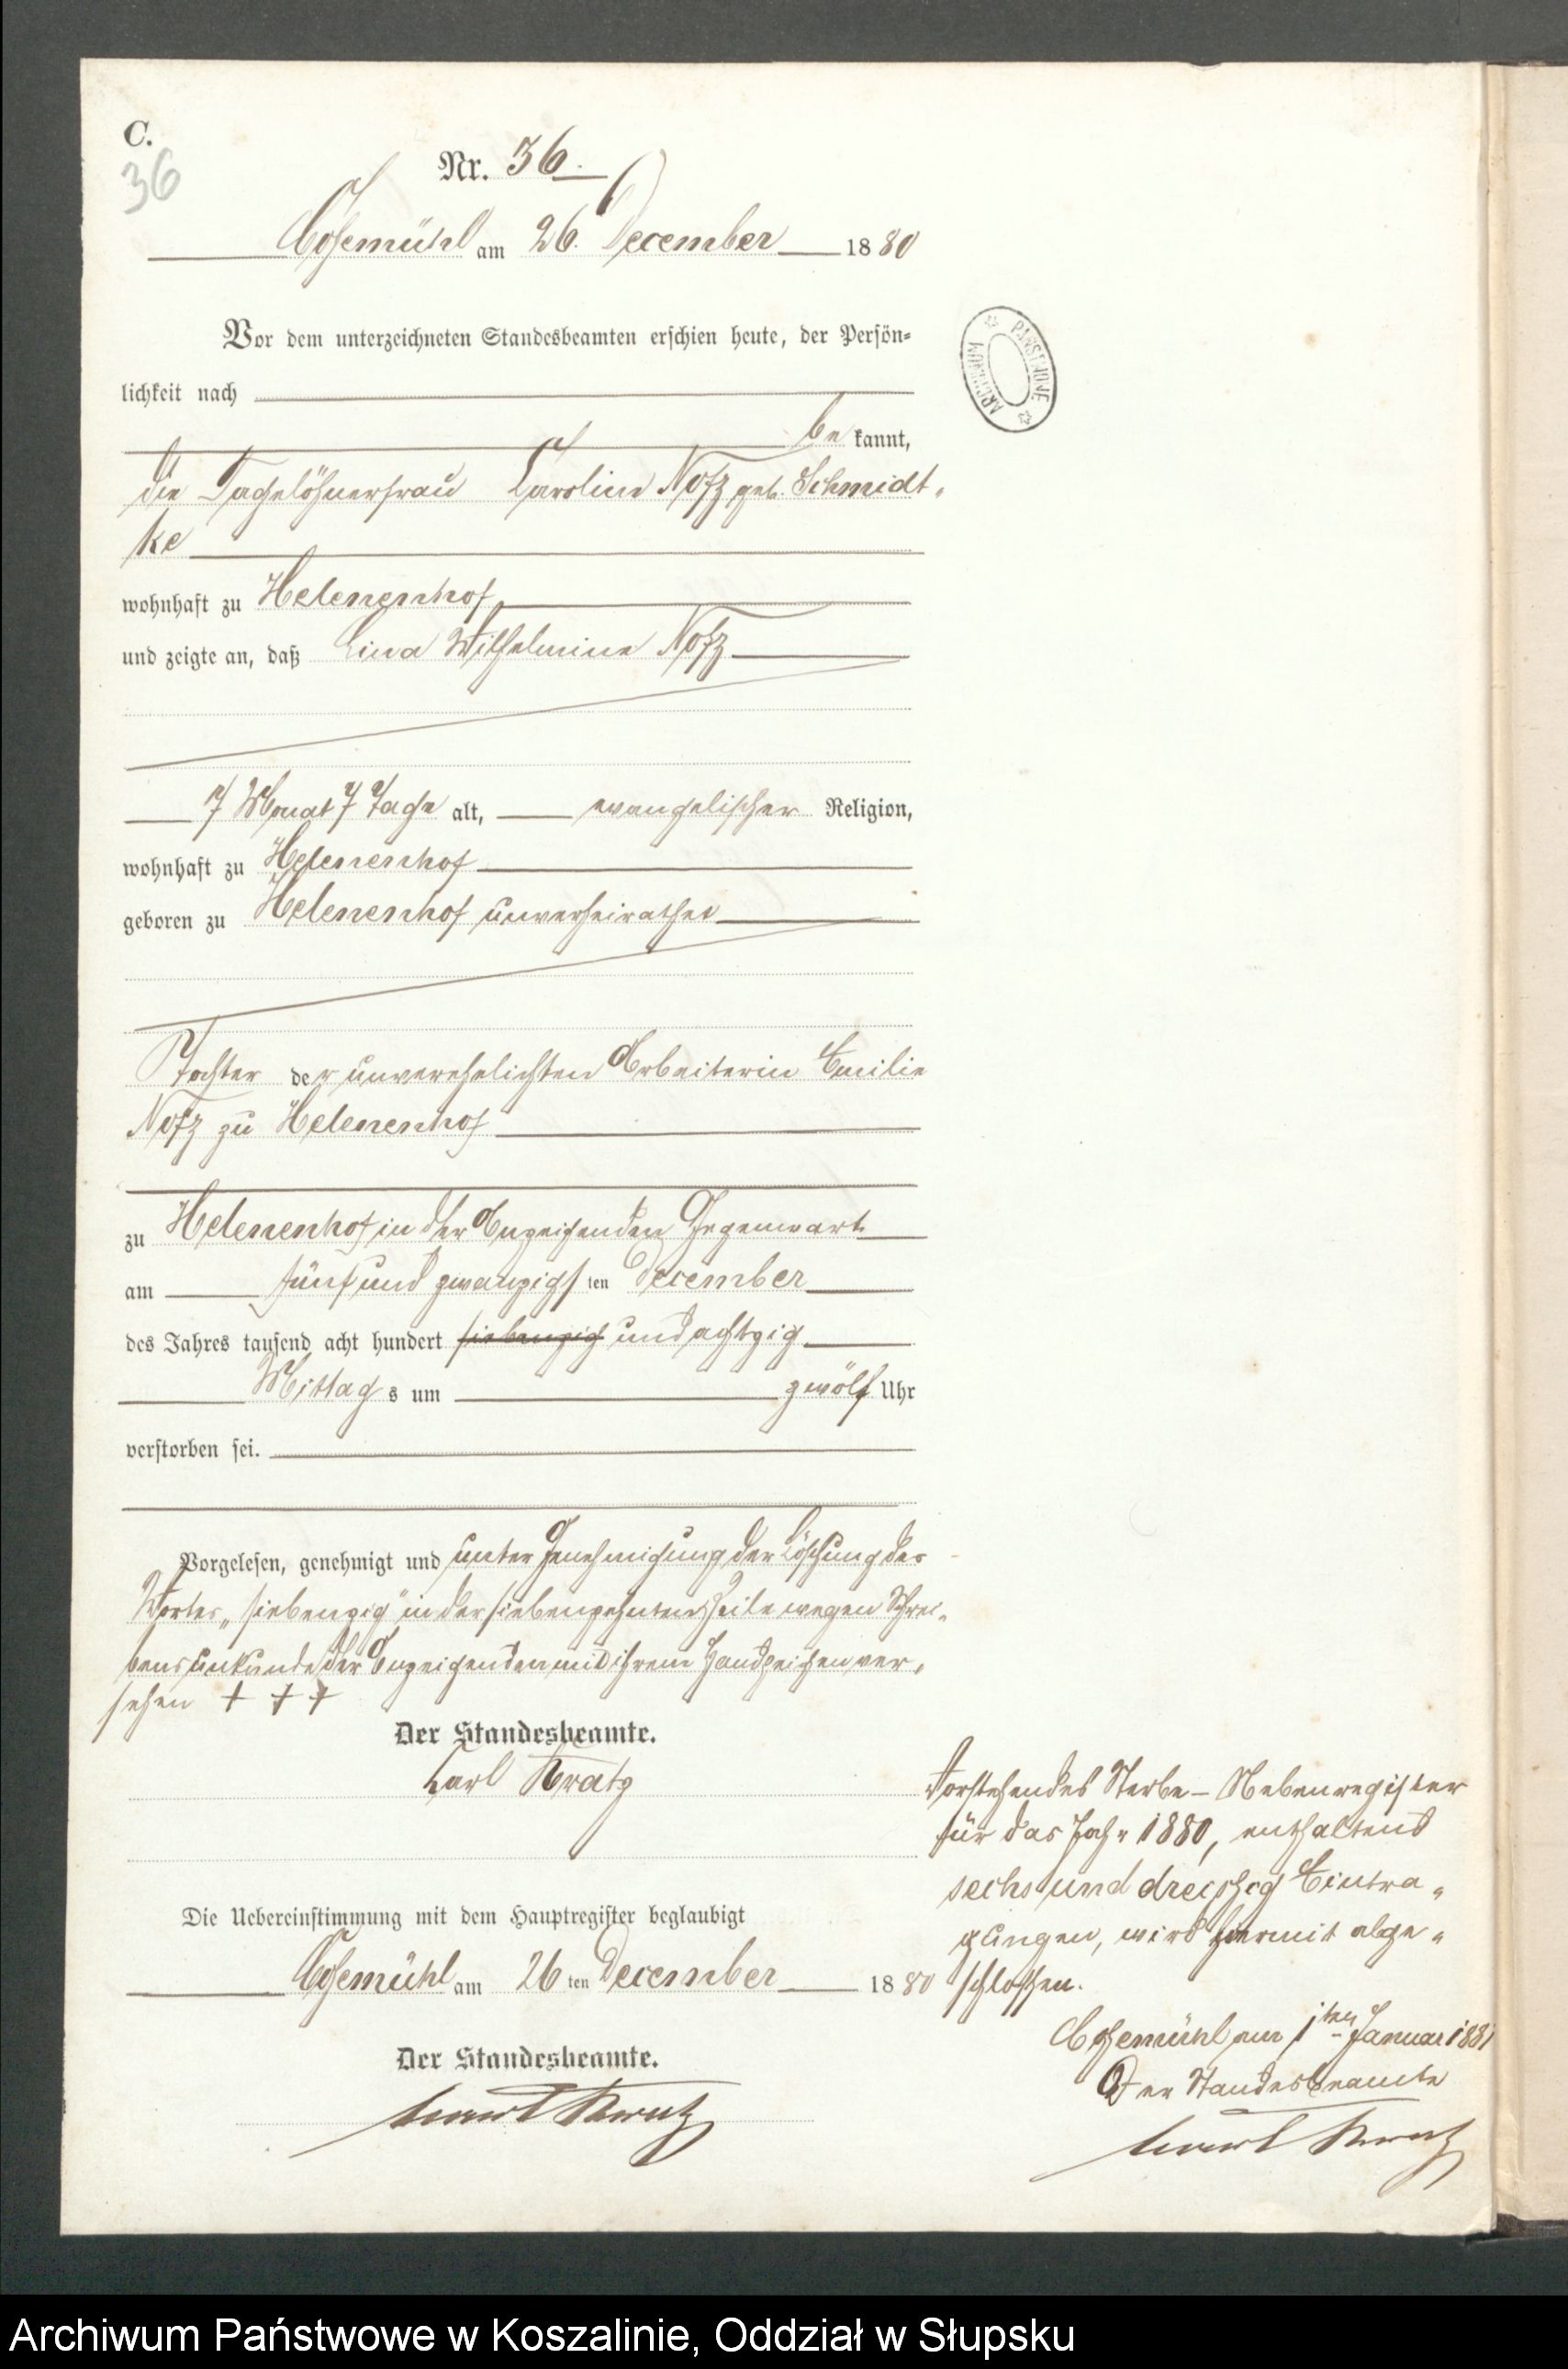 C.
36
Nr. 36.
Cosemühl am 26. December 1880
Vor dem unterzeichneten Standesbeamten erschien heute, der Persön-
lichkeit nach
be kannt,
die Tagelöhnerfrau Caroline Notz geb. Schmidt-
ke
wohnhaft zu Helenenhof
und zeigte an, daß Lina Wilhelmine Notz
7 Monat 7 Tage alt, evangelischer Religion,
wohnhaft zu Helenenhof
geboren zu Helenenhof unverheirathet
Tochter der unverehelichten Arbeiterin Emilie
Notz zu Helenenhof
zu Helenenhof in der Anzeigenden Gegenwart
am fünf und zwanzigsten December
des Jahres tausend acht hundert siebenzig und achtzig
Mittags um zwölf Uhr
verstorben sei.
Vorgelesen, genehmigt und unter Genehmigung der Löschung des
Wortes „siebenzig" in der siebenzehnten Zeile wegen Schrei-
bensunkunde der Anzeigenden mit ihrem Handzeichen ver-
sehen + + +
Der Standesbeamte.
Carl Kratz
Die Uebereinstimmung mit dem Hauptregister beglaubigt
Cosemühl am 26ten December 1880
Der Standesbeamte.
Carl Kratz
Vorstehendes Sterbe-Nebenregister
für das Jahr 1880, enthaltend
sechs und dreißzig Eintra-
gungen, wird hiermit abge-
schlossen.
Cosemühl am 1ten Januar 1881
Der Standesbeamte
Carl Kratz
ARCHIWUM PAŃSTWOWE
Archiwum Państwowe w Koszalinie, Oddział w Słupsku